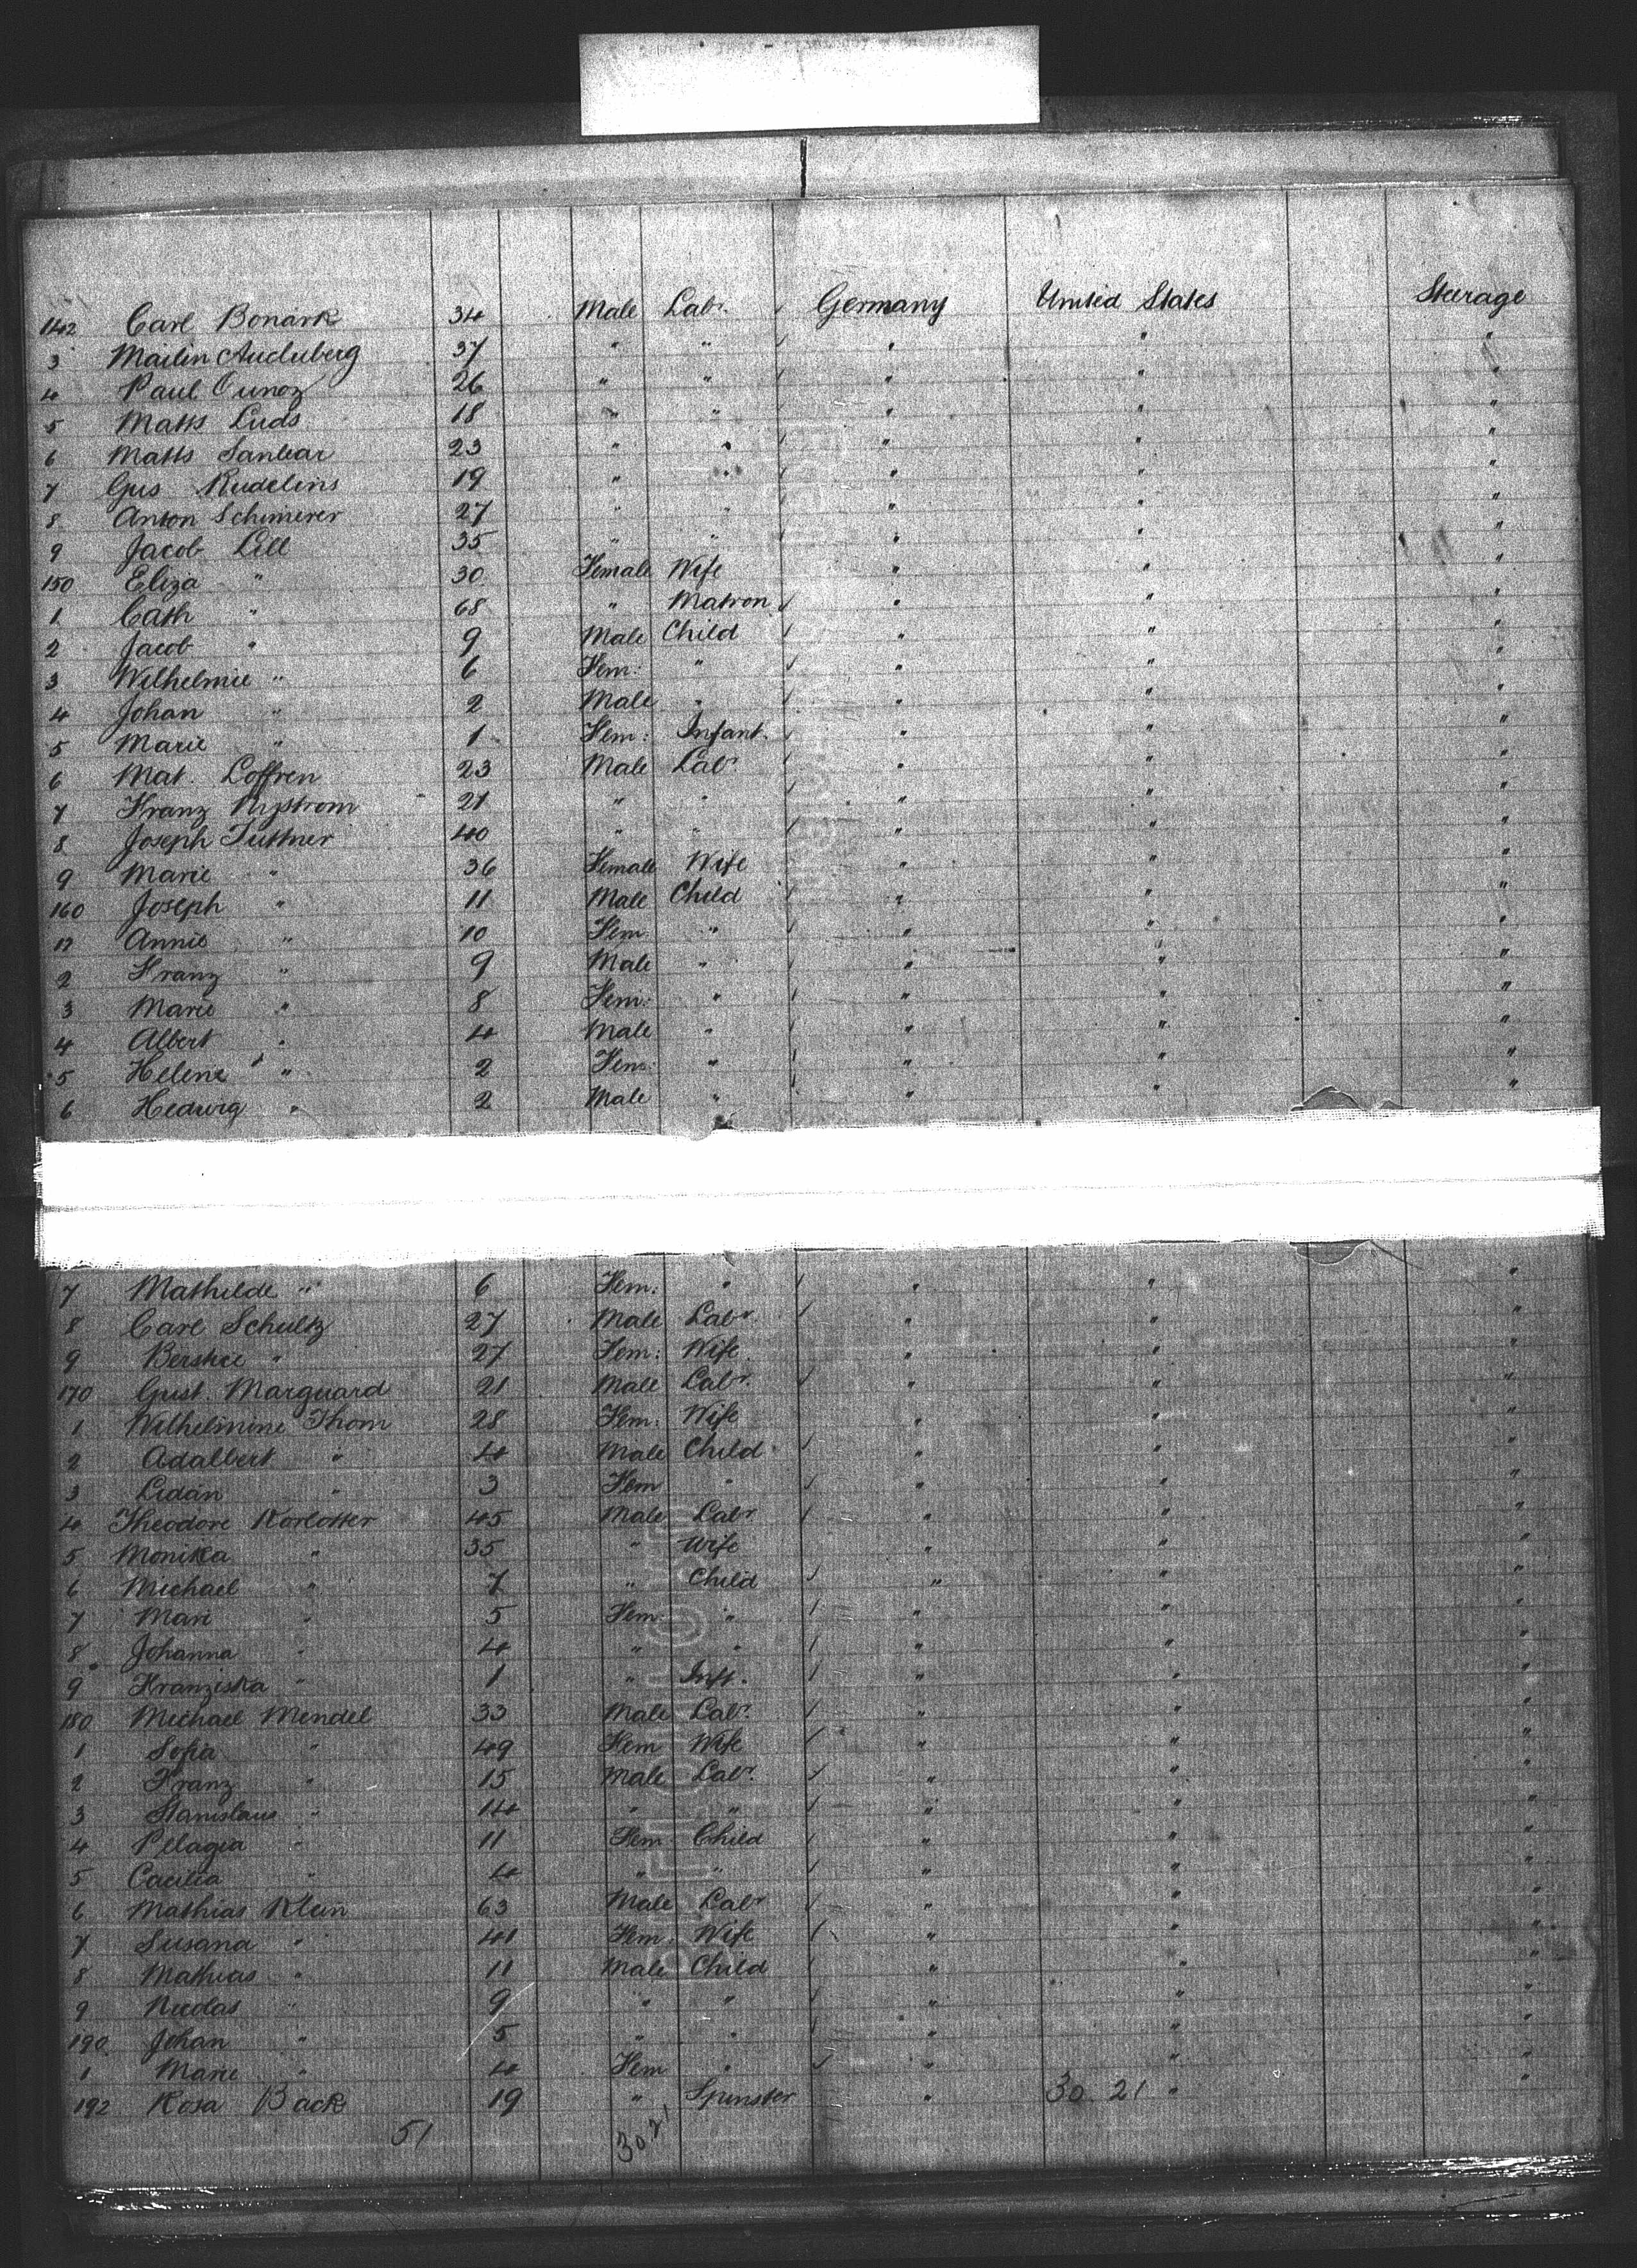 142 Carl Bonark 34 Male Labr. Germany United States Steerage
3 Mailin Auduberg 37 " " " " "
4 Paul Ounoz 26 " " " " "
5 Matts Luds 18 " " " " "
6 Matts Sanbar 23 " " " " "
7 Gus Rudelins 19 " " " " "
8 Anton Schimerer 27 " " " " "
9 Jacob Lill 35 " " " " "
150 Eliza " 30 Female Wife " " "
1 Cath " 68 " Matron " " "
2 Jacob " 9 Male Child " " "
3 Wilhelmie " 6 Fem: " " " "
4 Johan " 2 Male " " " "
5 Marie " 1 Fem: Infant. " " "
6 Mat. Loffren 23 Male Labr. " " "
7 Franz Nystrom 21 " " " " "
8 Joseph Tuttner 40 " " " " "
9 Marie " 36 Female Wife " " "
160 Joseph " 11 Male Child " " "
Annie " 10 Fem " " " "
2 Franz " 9 Male " " " "
3 Marie " 8 Fem: " " " "
4 Albert " 4 Male " " " "
5 Helene " 2 Fem: " " " "
6 Hedwig " 2 Male " " " "
7 Mathilde " 6 Fem: " " " "
8 Carl Schultz 27 Male Labr. " " "
9 " 27 Fem: Wife " " "
170 Gust. Marguard 21 Male Labr. " " "
1 Wilhelmine Thom 28 Fem: Wife " " "
2 Adalbert " 4 Male Child " " "
3 Lidan " 3 Fem " " " "
4 Theodore Korlotter 45 Male Labr " " "
5 Monika " 35 " Wife " " "
6 Michael " 7 " Child " " "
7 Mari " 5 Fem: " " " "
8 Johanna " 4 " " " " "
9 Franziska " 1 " Inft. " " "
180 Michael Mendel 33 Male Labr. " " "
1 Sofia " 49 Fem Wife " " "
2 Franz " 15 Male Labr. " " "
3 Stanislaus " 14 " " " " "
4 Pelagia " 11 Fem Child " " "
5 Cacilia " 4 " " " " "
6 Mathias Klein 63 Male Labr " " "
7 Susana " 41 Fem. Wife " " "
8 Mathias " 11 Male Child " " "
9 Nicolas " 9 " " " " "
190 Johan " 5 " " " " "
1 Marie " 4 Fem " " " "
192 Rosa Back 19 " Spinster " 30.21 " "
51 30.21